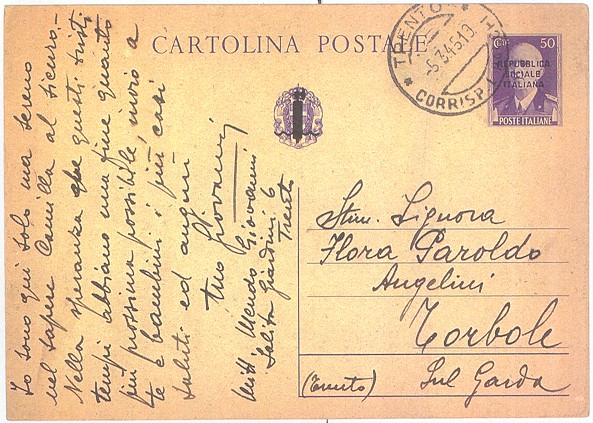 CARTOLINA POSTALE
TRENTO
5.3.45.19
CORRISP
CENT. 50
REPUBBLICA
SOCIALE
ITALIANA
POSTE ITALIANE
Io sono qui solo ma sereno
nel sapere Camilla al sicuro.-
Nella speranza che questi tristi
tempi abbiano una fine quanto
più prossima possibile invio a
te e bambini i più cari
saluti ed auguri
tuo Giovanni
Mitt Mendo Giovanni
Salita Giardini 6
Trento
Stim. Signora
Flora Paroldo
Angelini
Torbole
(Trento) Sul Garda